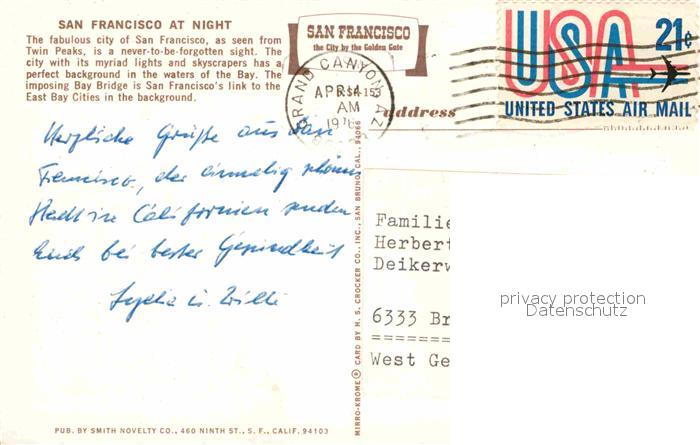 SAN FRANCISCO AT NIGHT
The fabulous city of San Francisco, as seen from
Twin Peaks, is a never-to-be-forgotten sight. The
city with its myriad lights and skyscrapers has a
perfect background in the waters of the Bay. The
imposing Bay Bridge is San Francisco's link to the
East Bay Cities in the background.
SAN FRANCISCO
the City by the Golden Gate
GRAND CANYON, AZ
APR 4
AM
USA 21¢
UNITED STATES AIR MAIL
address
Herzliche Grüße aus San
Francisco, der einmalig schönen
Stadt in Californien senden
Euch bei bester Gesundheit
Lydia u. Willi
Familie
Herbert
Deikerw
6333 Br
==========
West Ge
privacy protection
Datenschutz
MIRRO-KROME® CARD BY H. S. CROCKER CO., INC., SAN BRUNO, CAL., 94066
PUB. BY SMITH NOVELTY CO., 460 NINTH ST., S. F., CALIF. 94103